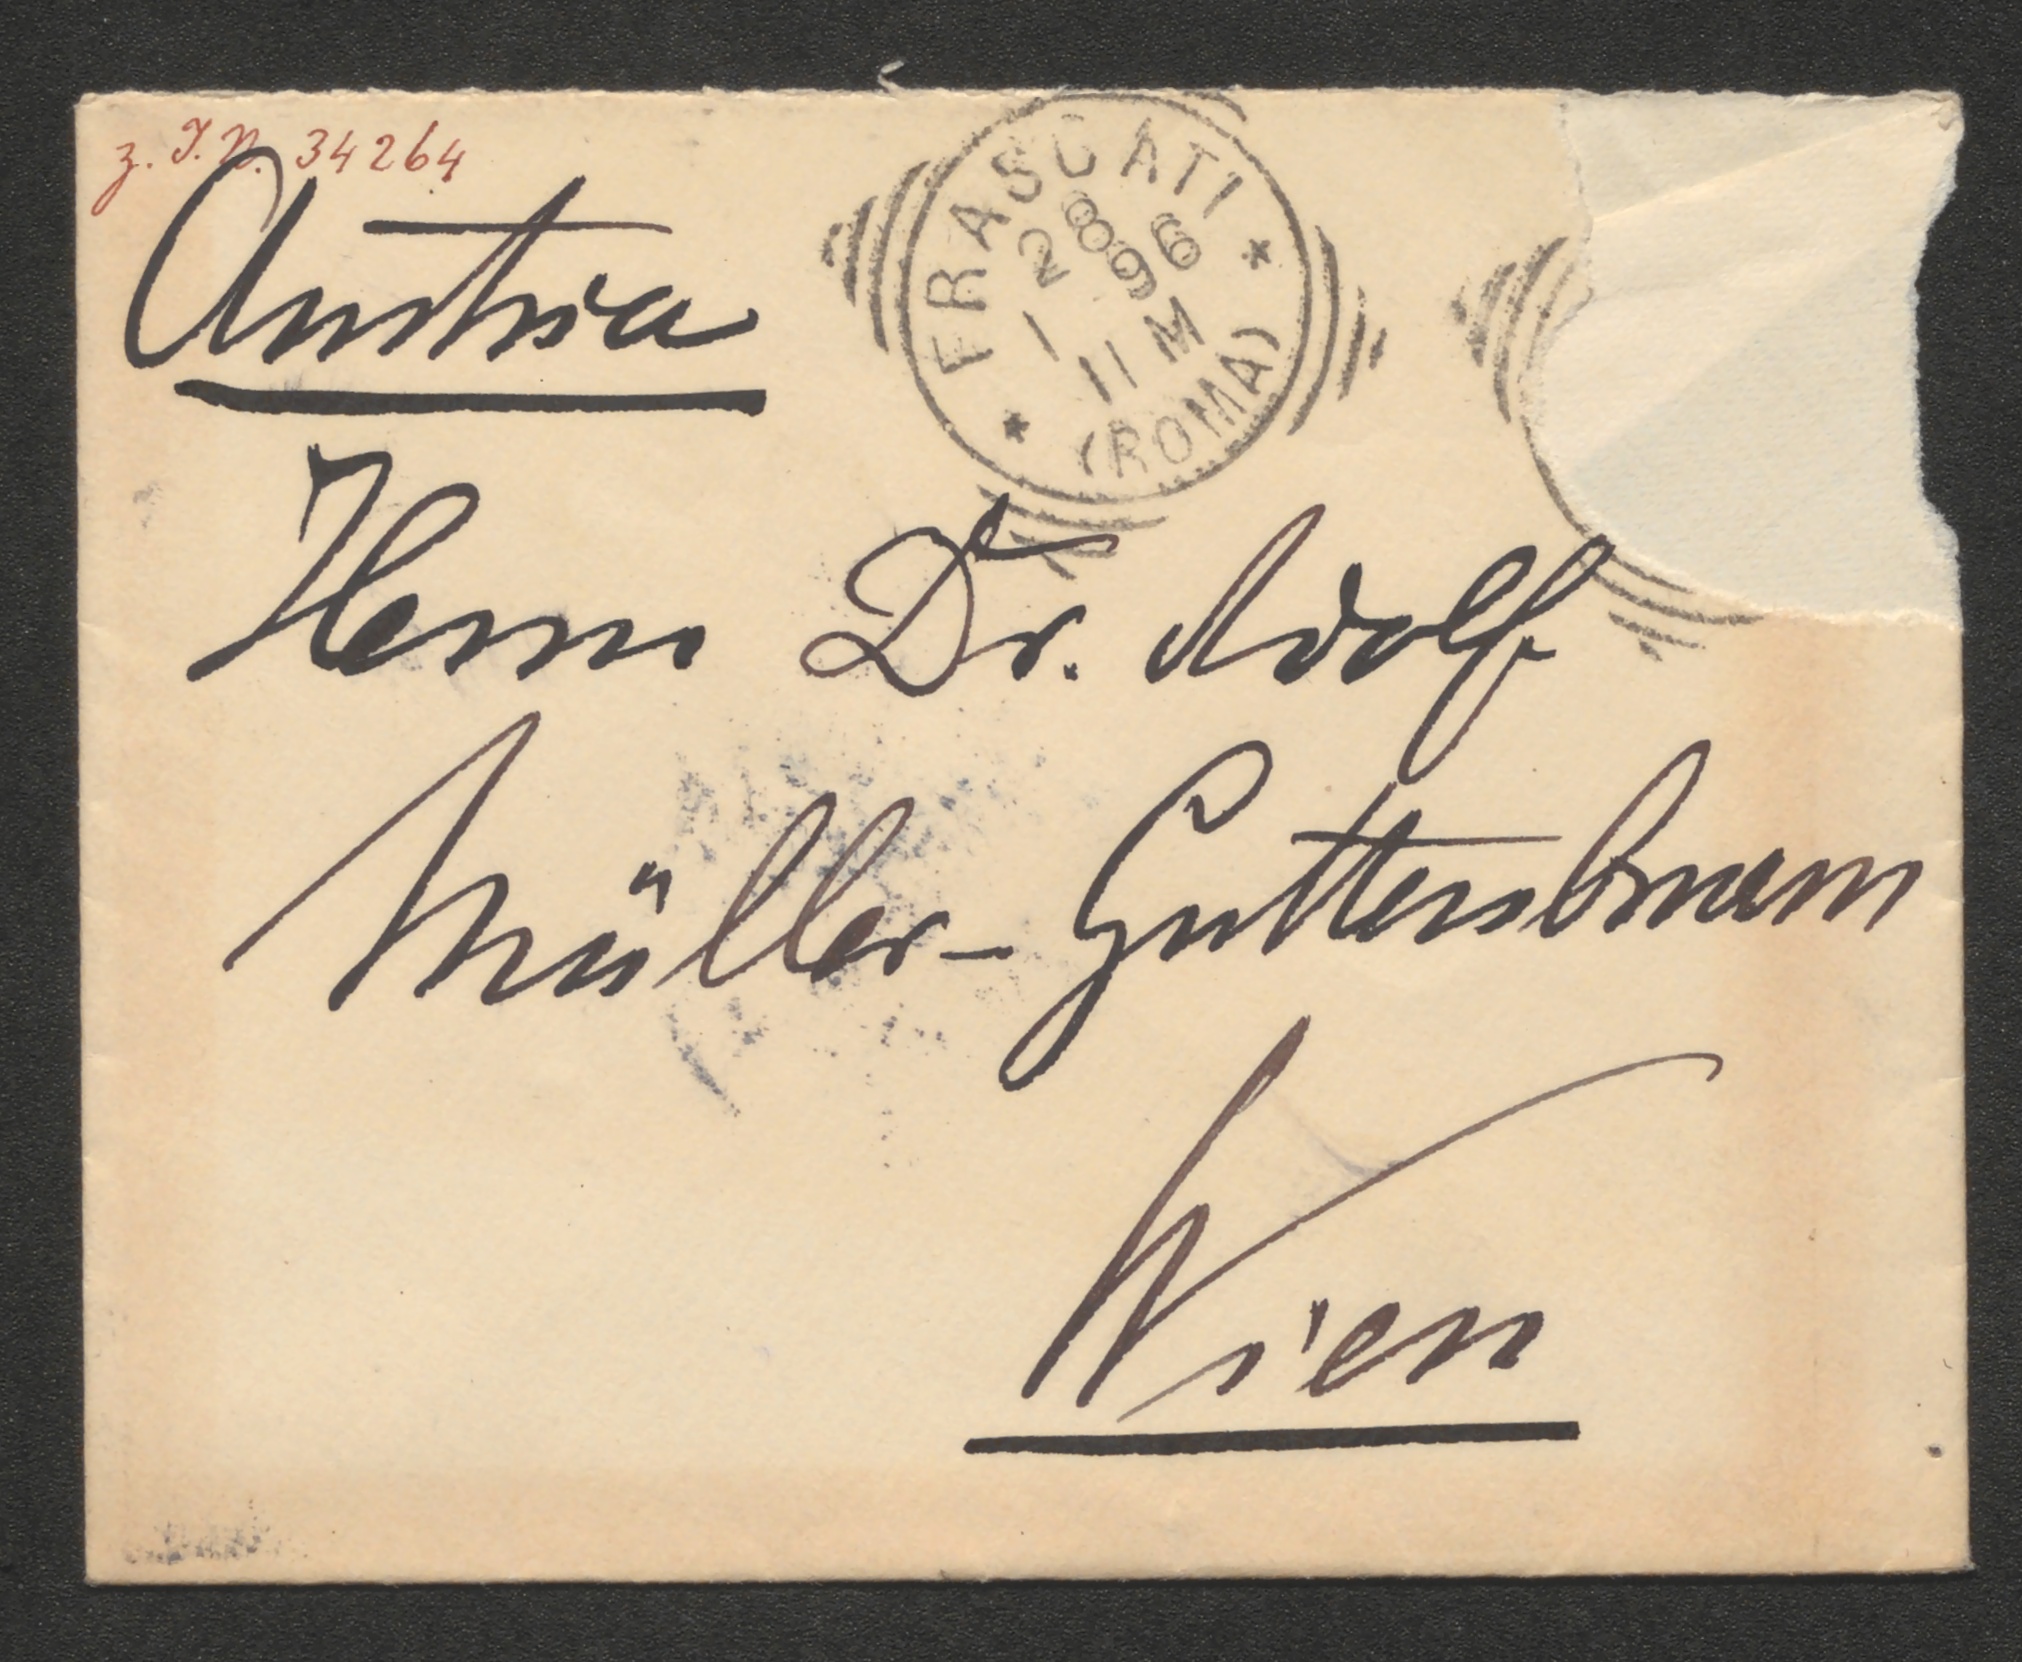 z. I.N. 34264
Austria
FRASCATI
28
1 96
11 M
(ROMA)
Herrn Dr. Adolf
Müller-Guttenbrunn
Wien